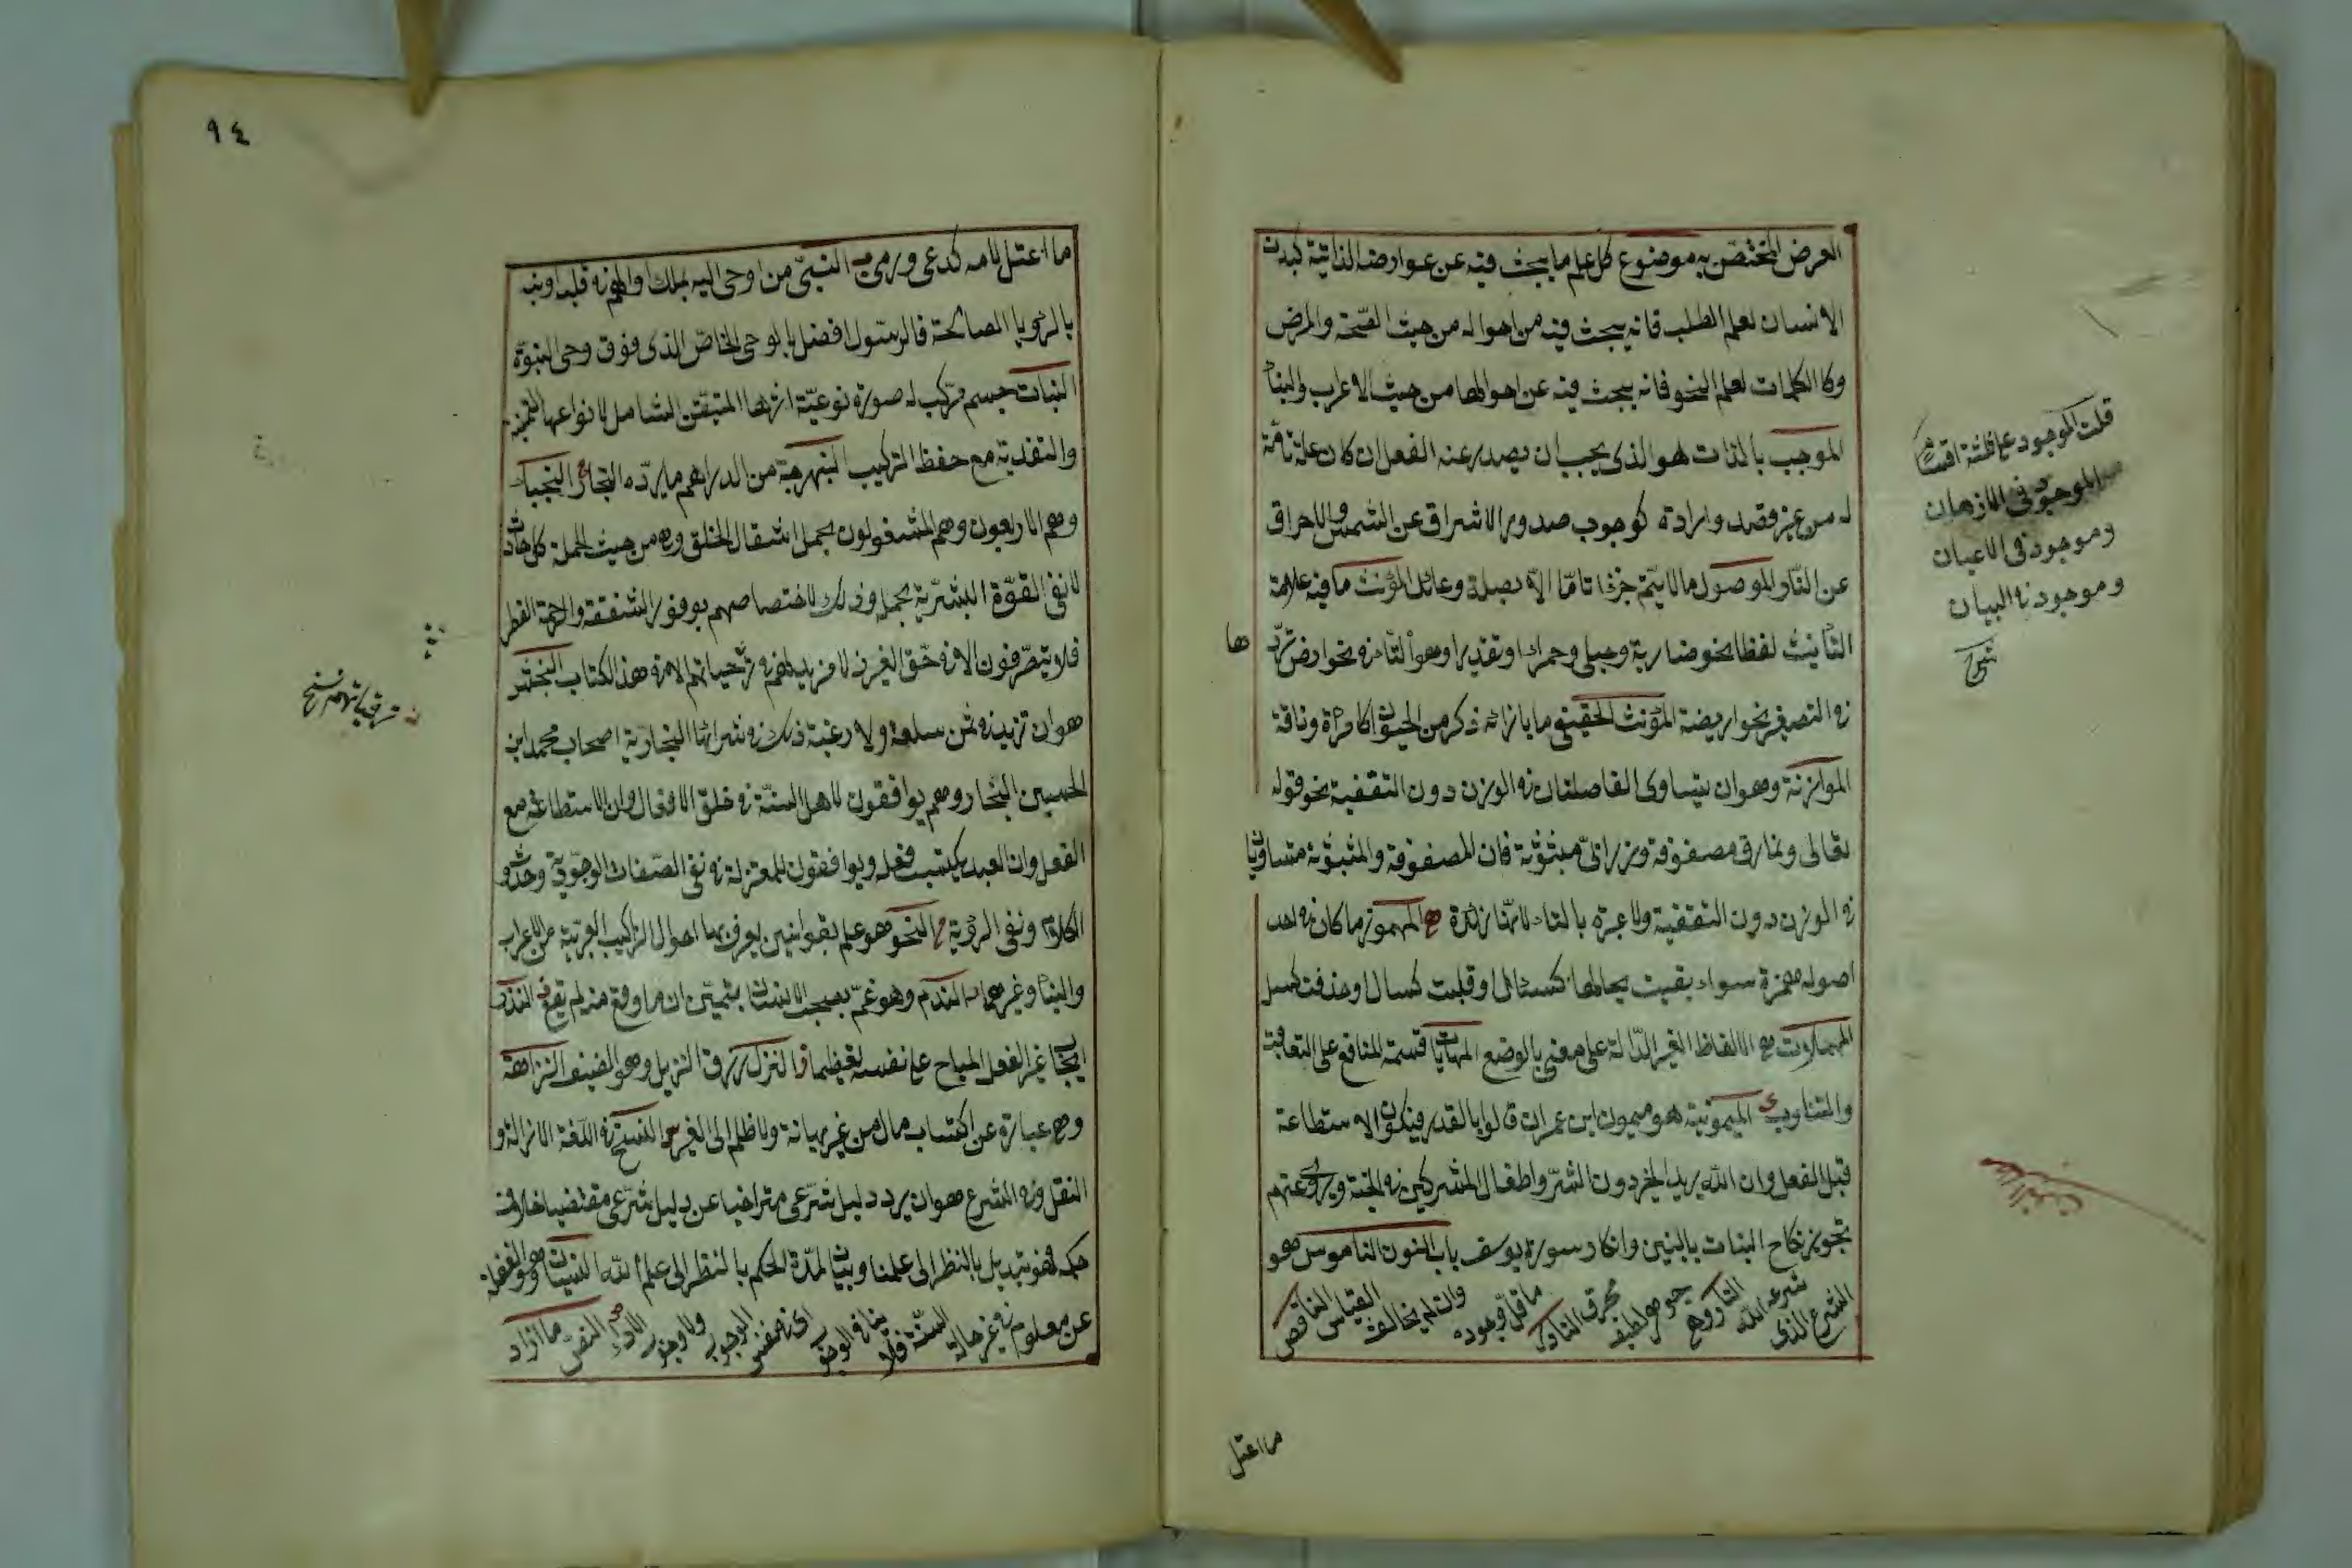 العرض المختص به موضوع كل علم ما يبحث فيه عن عوارضه الذاتية كبدن
الانسان لعلم الطب فانه يبحث فيه من احواله من حيث الصحة والمرض
وكالكلمات لعلم النحو فانه يبحث فيه عن احوالها من حيث الاعراب والبناء
الموجب بالذات هو الذى يجب ان يصدر عنه الفعل ان كان علة تامة
له من غير قصد وارادة كوجوب صدور الاشراق عن الشمس والاحراق
عن النار الموصول مالا يتم جزءا تاما الا بصلة وعائد المؤنث ما فيه علامة
التأنيث لفظا نحو ضاربة وحبلى وحمراء او تقديرا وهو التاء نحو ارض تردها
فى التصغير نحو اريضة المؤنث الحقيقى ما بازائه ذكر من الحيوان كامرأة وناقة
الموازنة وهو ان يتساوى الفاصلتان فى الوزن دون التقفية نحو قوله
تعالى ونمارق مصفوفة وزرابى مبثوثة فان المصفوفة والمبثوثة متساويان
فى الوزن دون التقفية ولا عبرة بالتاء لانها زائدة المهموز ما كان فى احد
اصوله همزة سواء بقيت بحالها كسئال او قلبت كسال او حذفت كسل
المهملات هى الالفاظ الغير الدالة على معنى بالوضع المهايات قسمة المنافع على التعاقب
والتناوب الميمونية هو ميمون ابن عمران قالوا بالقدر فيكون الاستطاعة
قبل الفعل وان الله يريد الخير دون الشر واطفال المشركين فى الجنة ويروى عنهم
تجويز نكاح البنات بالبنين وانكار سورة يوسف باب النون الناموس هو
الشرع الذى شرعه الله النار جوهر لطيف محرق النادر ما قل وجوده وان لم يخالف القياس الناقص
ما اعتل
قلت الموجود على ثلثة اقسام
الموجود فى الاذهان
وموجود فى الاعيان
وموجود فى البيان
٩٤
ما اعتل لامه كدعى ورمى النبى من اوحى اليه بملك او الهم فى قلبه او نبه
بالرؤيا الصالحة فالرسول افضل بالوحى الخاص الذى فوق وحى النبوة
النبات جسم مركب له صورة نوعية اثرها المتيقن الشامل لانواعها التنمية
والتغذية مع حفظ التركيب النبهرجة من الدراهم ما يرده التجار النجباء
وهم الاربعون وهم المشغولون بحمل اثقال الخلق وهى من حيث الجملة كل حادث
لا تفى القوة البشرية بحمله وذلك لاختصاصهم بوفور الشفقة والرحمة الفطرية
فلا يتصرفون الا فى حق الغير اذ لا مزيد لهم فى ترحياتهم الا فى هذا الكتاب النجش
هو ان تزيد فى ثمن سلعة ولا رغبة لك فى شرائها النجارية اصحاب محمد ابن
الحسين النجار وهم يوافقون لاهل السنة فى خلق الافعال وان الاستطاعة مع
الفعل وان العبد يكتسب فعله ويوافقون للمعتزلة فى نفى الصفات الوجودية وحدوث
الكلام ونفى الرؤية النحو هو علم بقوانين يعرف بها احوال التراكيب العربية من الاعراب
والبناء وغيرهما الندم وهو غم يصيب الانسان يتمنى ان ما وقع منه لم يقع النذر
ايجاب غير الفعل المباح على نفسه تعظيما النزل رزق النزيل وهو الضيف النزاهة
وهى عبارة عن اكتساب مال من غير مهانة ولا ظلم الى الغير النسخ فى اللغة الازالة و
النقل وفى الشرع هو ان يرد دليل شرعى متراخيا عن دليل شرعى مقتضيا خلاف
حكمه فهو تبديل بالنظر الى علمنا وبيان لمدة الحكم بالنظر الى علم الله النسيان وهو الغفلة
عن معلوم فى غير حالة السنة فلا ينافى الوجوب اى نفس الوجوب ولا وجوب الاداء النص ما ازداد
ترقياتهم نسخ